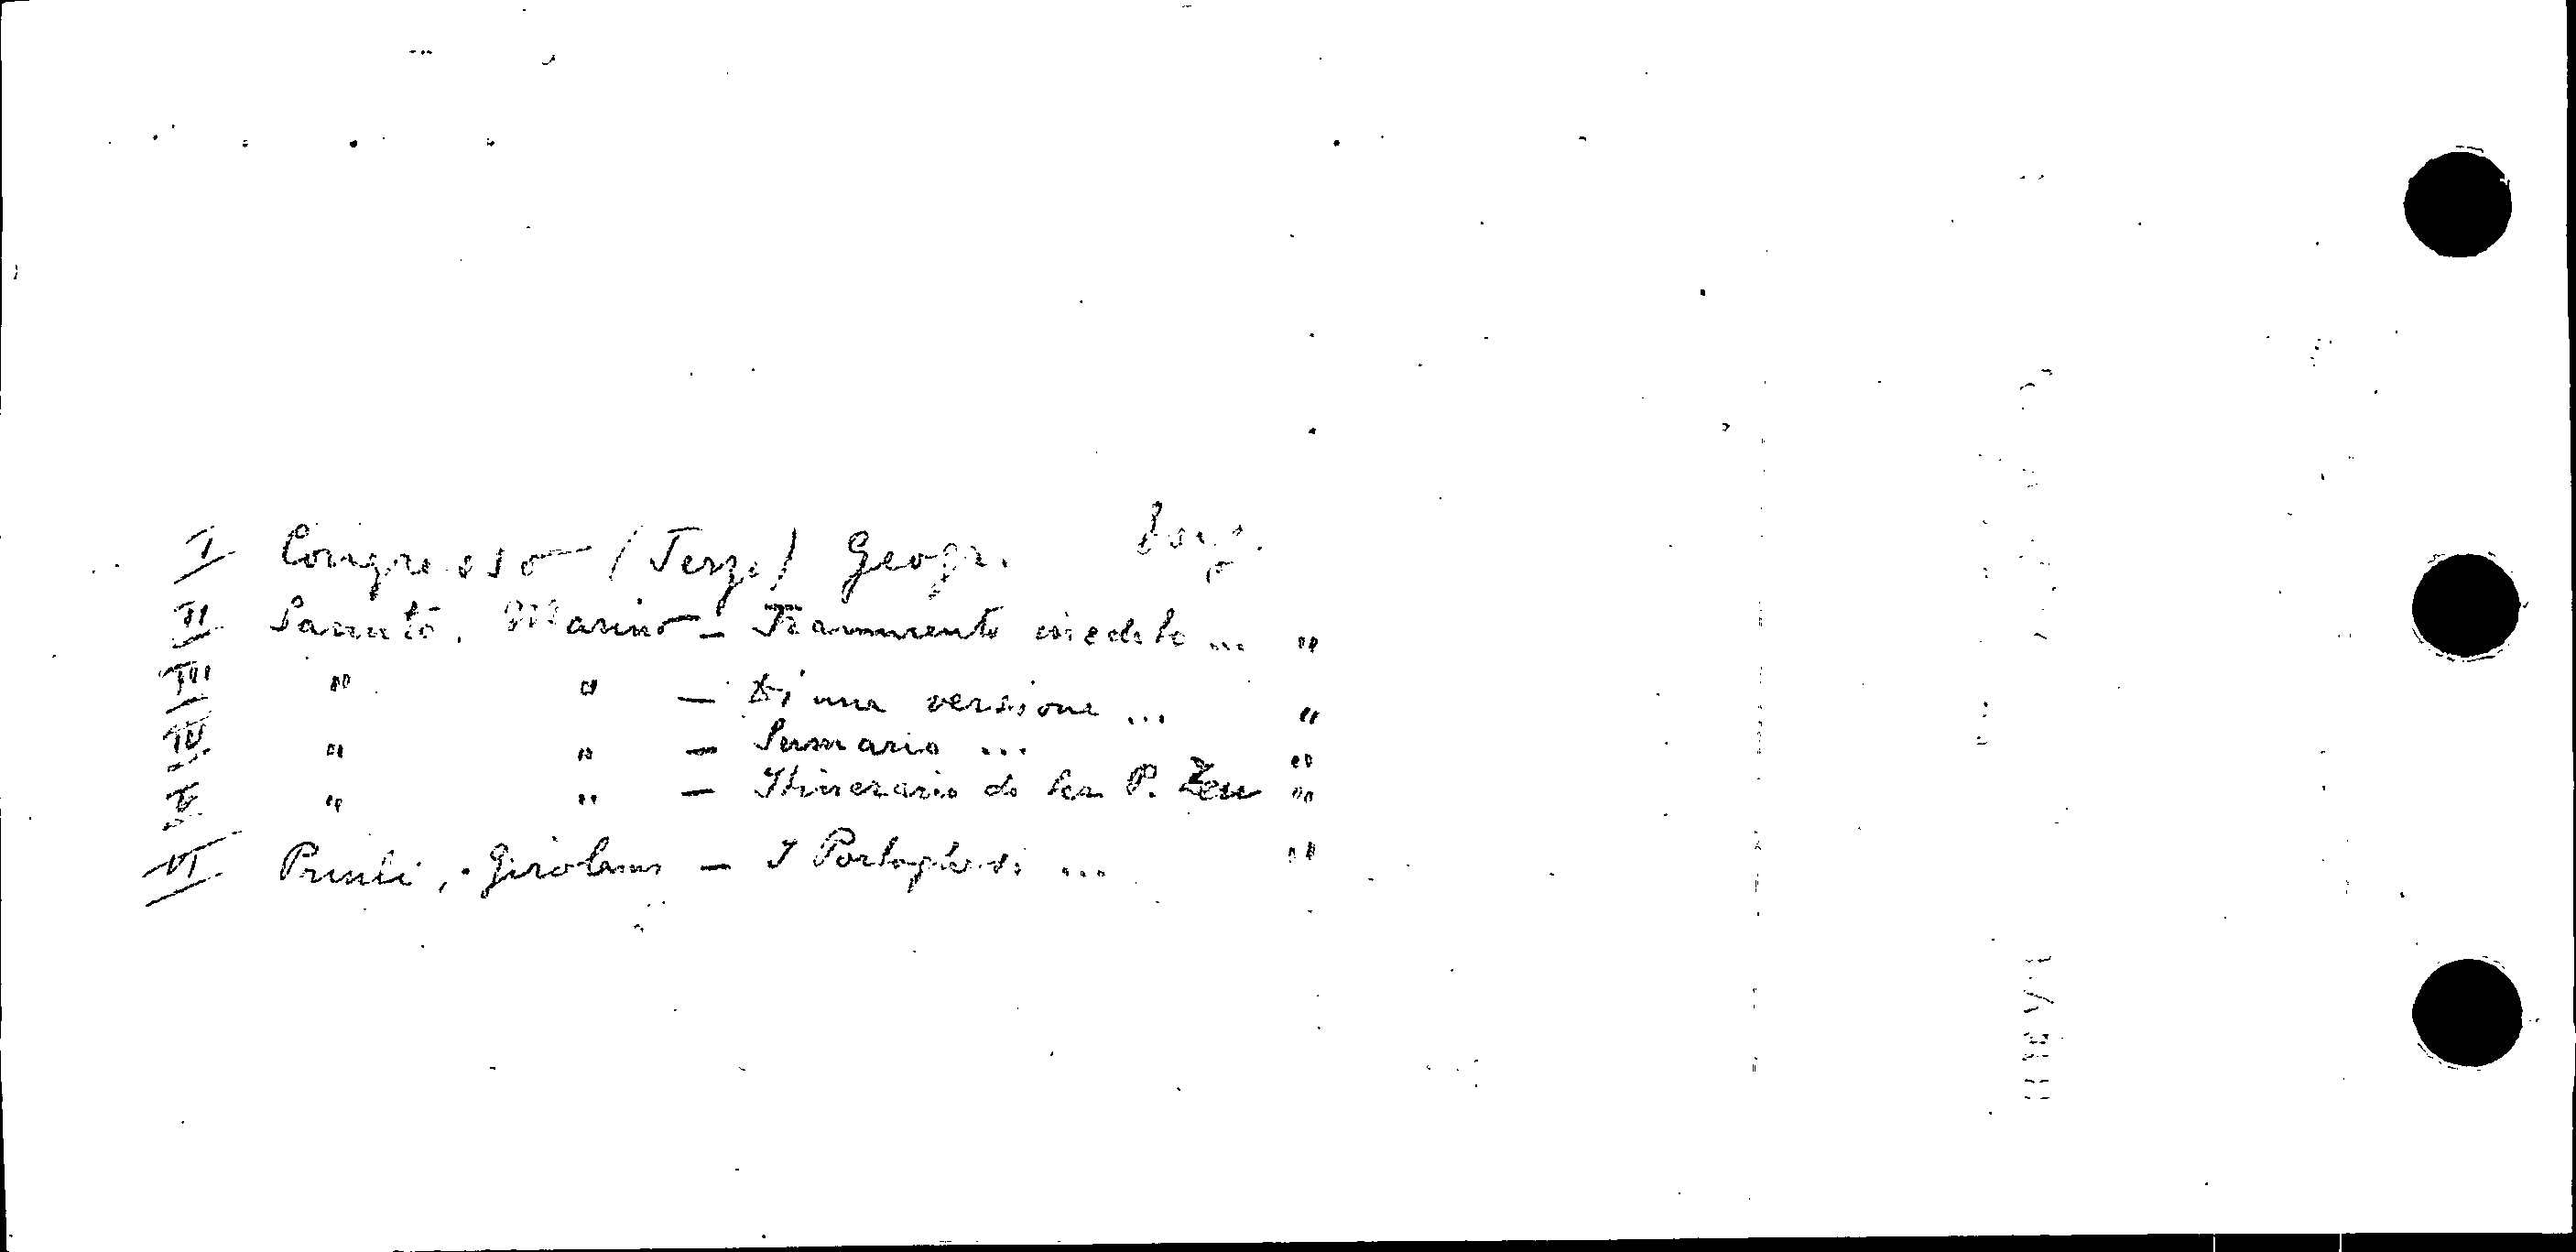 I Congresso (Terzo) Geogr.
II Sanuto, Marino - Frammento inedito ... "
III " " - Di una versione ... "
IV " " - Sumario ... "
V " " - Itinerario di Ser P. Zen "
VI Priuli, Girolamo - I Portoghesi ... "